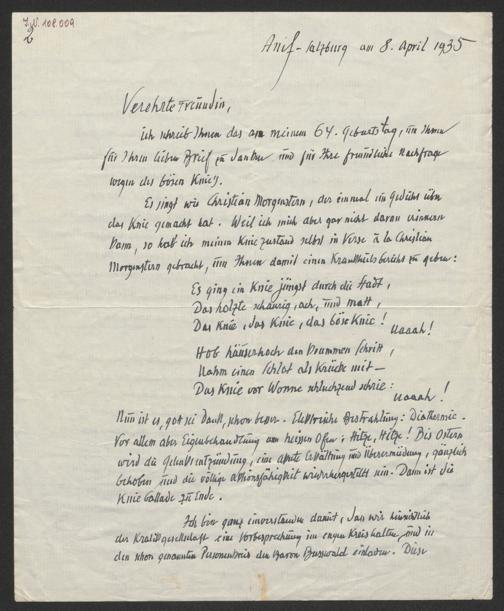 I.N. 108.009
2
Anif-Salzburg am 8. April 1935
Verehrte Freundin,
ich schreib Ihnen das an meinem 64. Geburtstag, um Ihnen
für Ihren lieben Brief zu danken und für Ihre freundliche Nachfrage
wegen des bösen Knie's.
Es singt wie Christian Morgenstern, der einmal ein Gedicht übr
das Knie gemacht hat. Weil ich mich aber gar nicht daran erinnern
kann, so hab ich meinen Kniezustand selbst in Verse à la Christian
Morgenstern gebracht, um Ihnen damit einen Krankheitsbericht zu geben:
Es ging ein Knie jüngst durch die Stadt,
Das holzte schaurig, ach, und matt,
Das Knie, das Knie, das böse Knie!
Uaaah!
Hob häuserhoch den krummen Schritt,
Nahm einen Schlot als Krücke mit—
Das Knie vor Wonne schluchzend schrie:
Uaaah!
Nun ist es, gott sei dank, schon besser. Elektrische Bestrahlung: Diathermie.
Vor allem aber Eigenbehandlung am heissen Ofen: Hitze, Hitze! Bis Ostern
wird die Gelenksentzündung, eine akute Erkältung und Übermüdung, gänzlich
behoben und die völlige Aktionsfähigkeit wiederhergestellt sein. Dann ist die
Knieballade zu Ende.
Ich bin ganz einverstanden damit, dass wir hinsichtlich
der Kralikgesellschaft eine Vorbesprechung im engen Kreis halten, und in
den schon genannten Personenkreis den Baron einladen. Diese